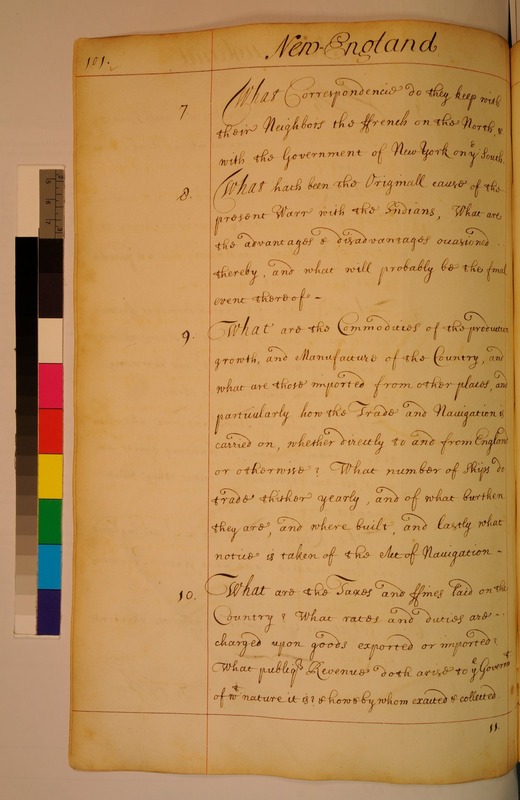 101.
New-England
7. What Correspondencie do they keep with
their Neighbors the ffrench on the North, &
with the Government of New York on yᵉ South.
8. What hath been the Originall cause of the
present Warr with the Indians, What are
the advantages & disadvantages occasioned
thereby, and what will probably be the final
event thereof -
9. What are the Commodities of the production
growth, and Manufacture of the Country, and
what are those imported from other places, and
particularly how the Trade and Navigation is
carried on, whether directly to and from England
or otherwise? What number of Ships do
trade thither yearly, and of what burthen
they are, and where built, and lastly what
notice is taken of the Act of Navigation -
10. What are the Taxes and ffines laid on the
Country? What rates and duties are -
charged upon goods exported or imported?
What publiq Revenue doth arise to yᵉ Governmᵗ
of wᵗ nature it is? & how & by whom exacted & collected
11.